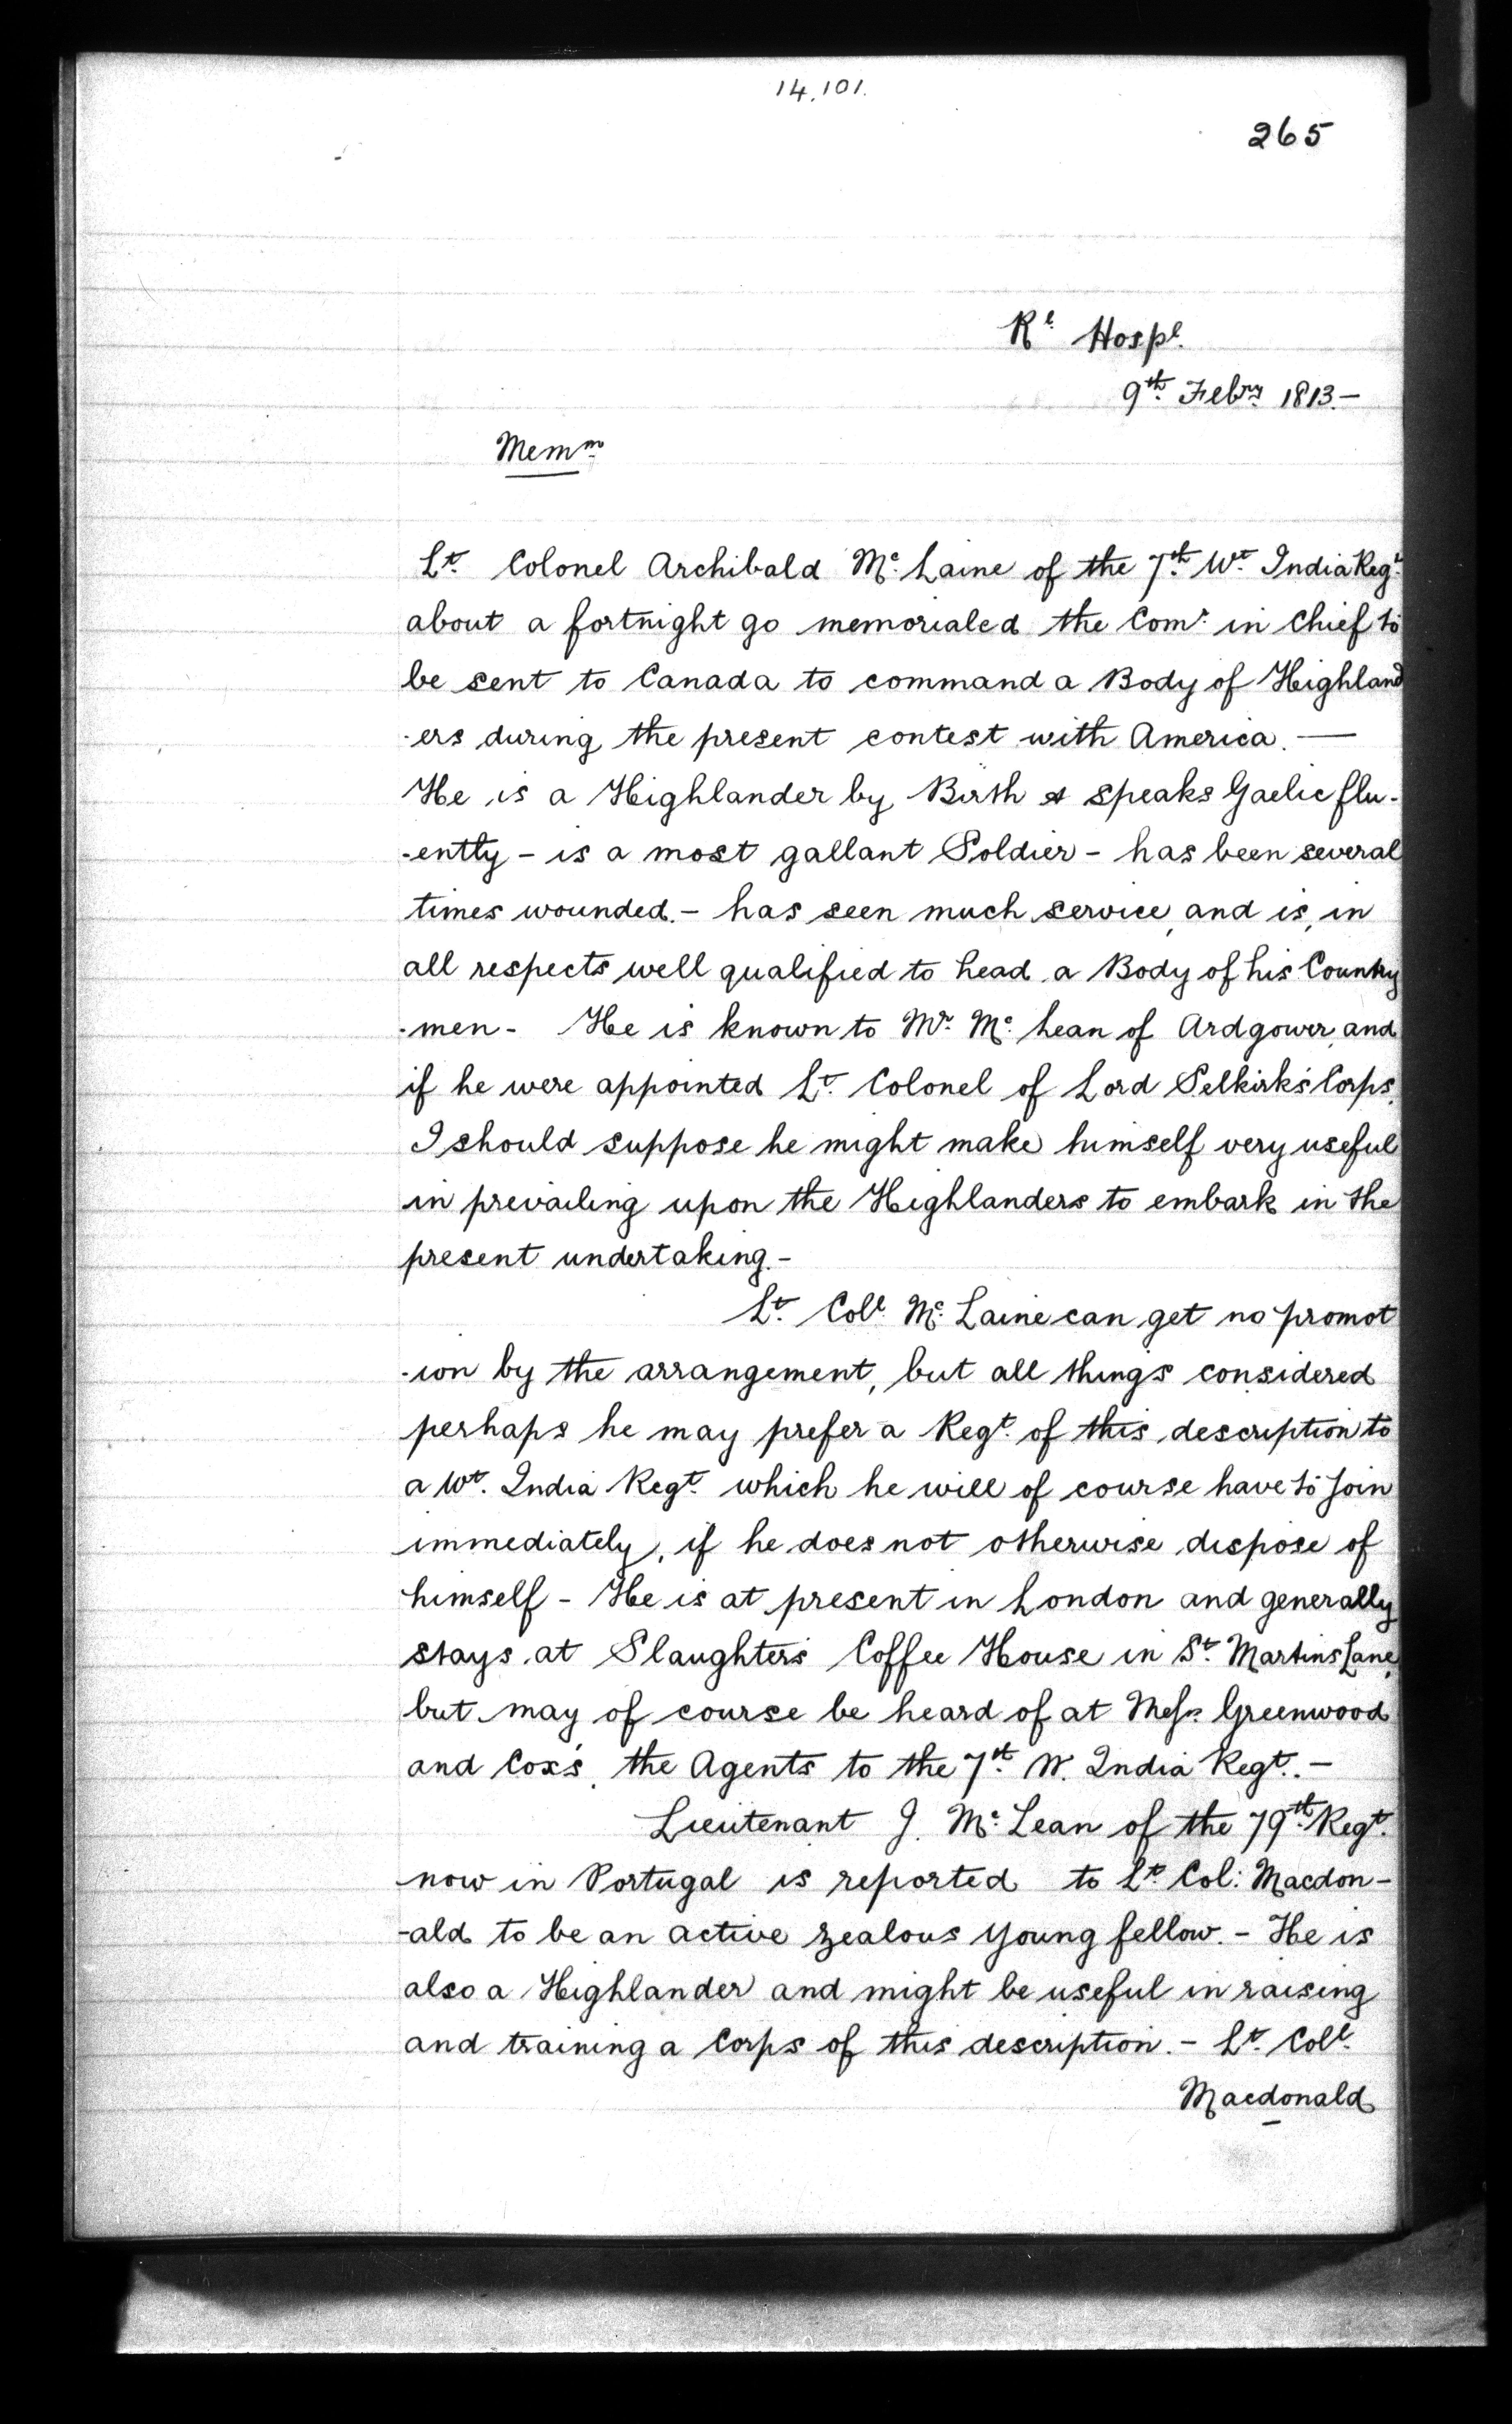 14,101.
265
Rl. Hospl.
9th. Febry. 1813.-
Memm.
Lt. Colonel Archibald Mc. Laine of the 7th. Wt. India Regt.
about a fortnight go memorialed the Comr. in Chief to
be sent to Canada to command a Body of Highland
-ers during the present contest with America. —
He is a Highlander by Birth & speaks Gaelic flu-
-ently - is a most gallant Soldier - has been several
times wounded. - has seen much service, and is, in
all respects well qualified to head a Body of his Country
-men - He is known to Mr. Mc. Lean of Ardgower, and
if he were appointed Lt. Colonel of Lord Selkirk's Corps,
I should suppose he might make himself very useful
in prevailing upon the Highlanders to embark in the
present undertaking. -
Lt. Coll. Mc. Laine can get no promot
-ion by the arrangement, but all things considered
perhaps he may prefer a Regt. of this description to
a Wt. India Regt. which he will of course have to join
immediately, if he does not otherwise dispose of
himself - He is at present in London and generally
stays at Slaughter's Coffee House in St. Martins Lane,
but may of course be heard of at Messrs. Greenwood
and Cox's, the Agents to the 7th. W. India Regt. -
Lieutenant J. Mc. Lean of the 79th. Regt.
now in Portugal is reported to Lt. Col: Macdon-
-ald to be an active zealous young fellow. - He is
also a Highlander and might be useful in raising
and training a Corps of this description. - Lt. Coll.
Macdonald